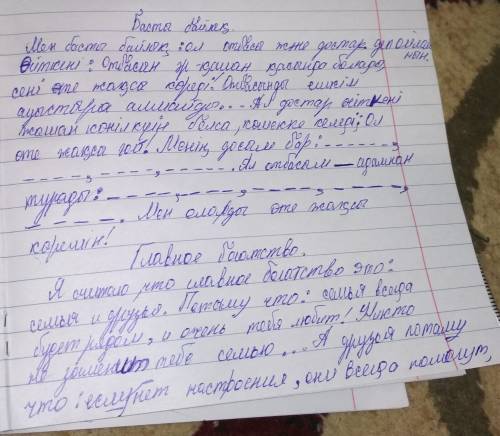 Басты байлық.
Мен басты байлық: ол отбасы және достар деп ойлай
мын.
Өйткені: Отбасың әр қашан қасыңда болады,
сені өте жақсы көреді! Отбасыңды ешкім
ауыстыра алмайды... Ал достар өйткені
жаман көніл күйің болса, көмекке келеді; Ол
өте жақсы ғой. Менің досым бар: _ _ _ _ _,
_ _ _ _ _, _ _ _ _ _, _ _ _ _ _. Ал отбасым — адамнан
турады: _ _ _ _ _, _ _ _ _ _, _ _ _ _ _, _ _ _ _ _,
_ _ _ _ _. Мен оларды өте жақсы
көремін!
Главное богатство.
Я считаю, что главное богатство это:
семья и друзья. Потому что: семья всегда
будет рядом, и очень тебя любит! Никто
не заменит тебе семью... А друзья потому
что: если нет настроения, они всегда помогут,